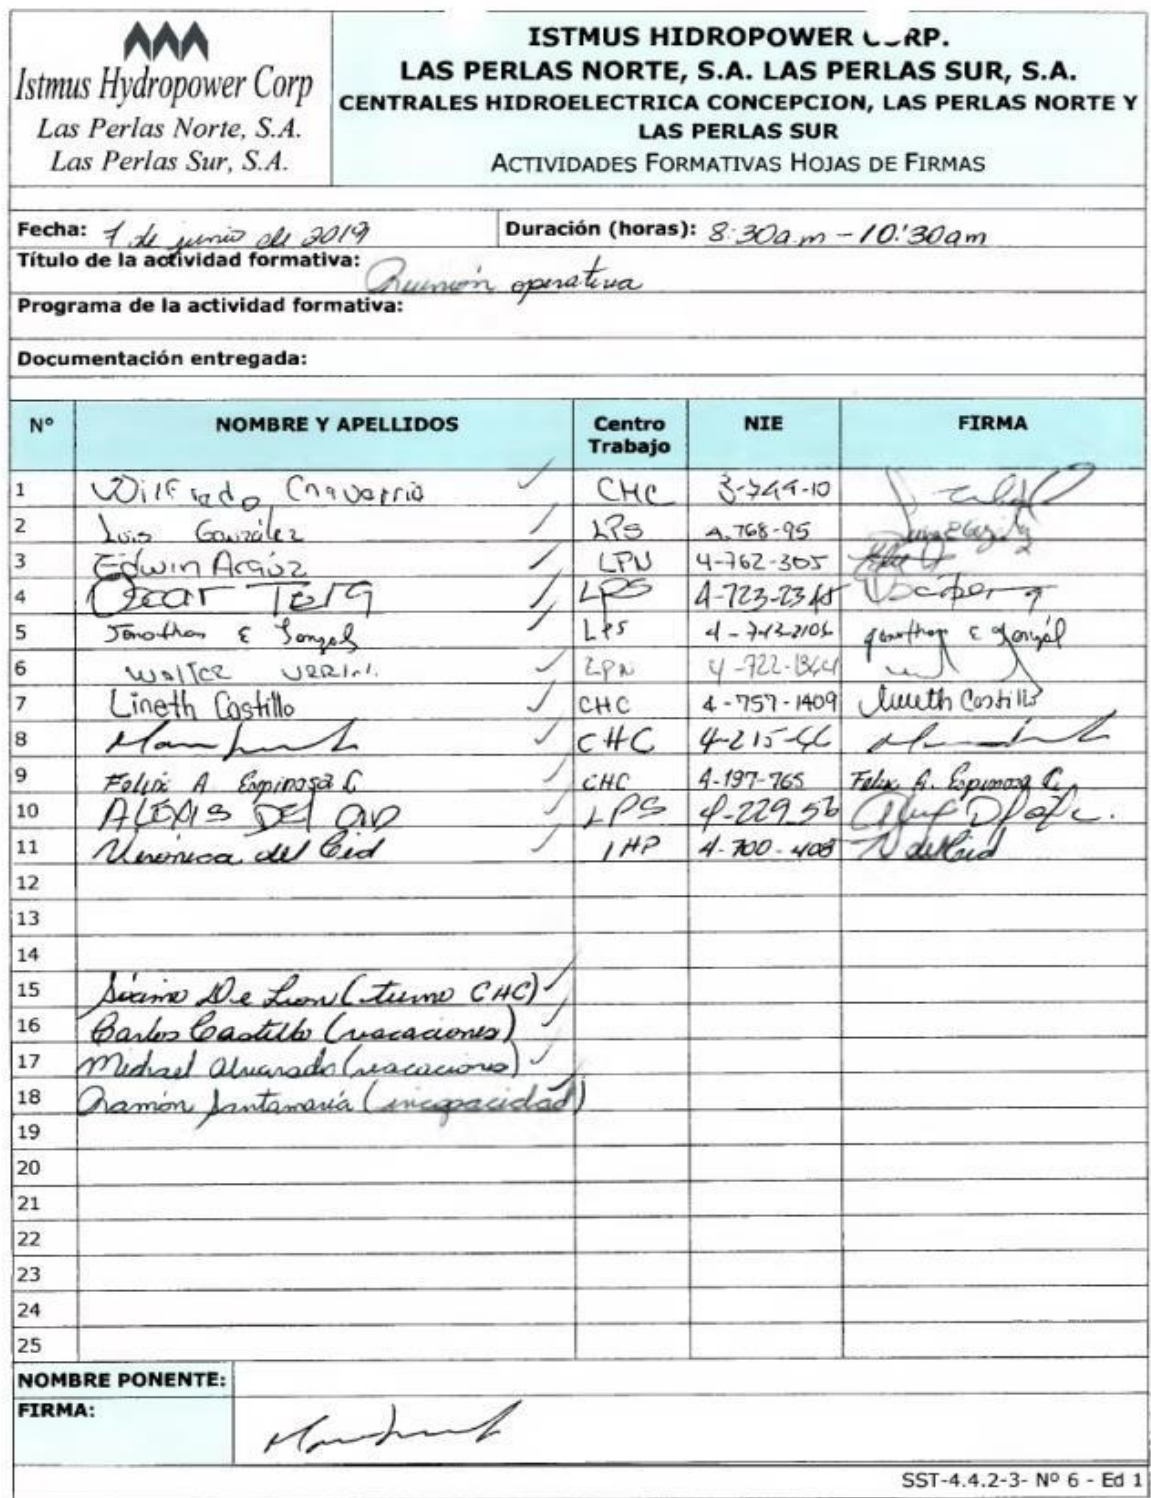 Istmus Hydropower Corp
Las Perlas Norte, S.A.
Las Perlas Sur, S.A.
ISTMUS HIDROPOWER RP.
LAS PERLAS NORTE, S.A. LAS PERLAS SUR, S.A.
CENTRALES HIDROELECTRICA CONCEPCION, LAS PERLAS NORTE Y
LAS PERLAS SUR
ACTIVIDADES FORMATIVAS HOJAS DE FIRMAS
Fecha: 7 de junio de 2019 Duración (horas): 8:30a.m - 10:30am
Título de la actividad formativa: Reunión operativa
Programa de la actividad formativa:
Documentación entregada:
Nº NOMBRE Y APELLIDOS Centro Trabajo NIE FIRMA
1 Wilfredo Chavarria CHC
2 Luis González LPS 4-768-95
3 Edwin Araúz LPN 4-762-305
4 Oscar LPS
5 Jonathan E LPS Jonathan E
6 Walter LPN
7 Lineth Castillo CHC 4-757-1409 Lineth Castillo
8 CHC
9 Felix A Espinosa C CHC 4-197-765 Felix A. Espinosa C.
10 ALEXIS DEL CID LPS 4-229 56
11 Veronica del Cid IHP 4-700-408 V del Cid
12
13
14
15 De Leon (turno CHC)
16 Carlos Castillo (vacaciones)
17 Michael Alvarado (vacaciones)
18 Ramón Santamaría (incapacidad)
19
20
21
22
23
24
25
NOMBRE PONENTE:
FIRMA:
SST-4.4.2-3- Nº 6 - Ed 1